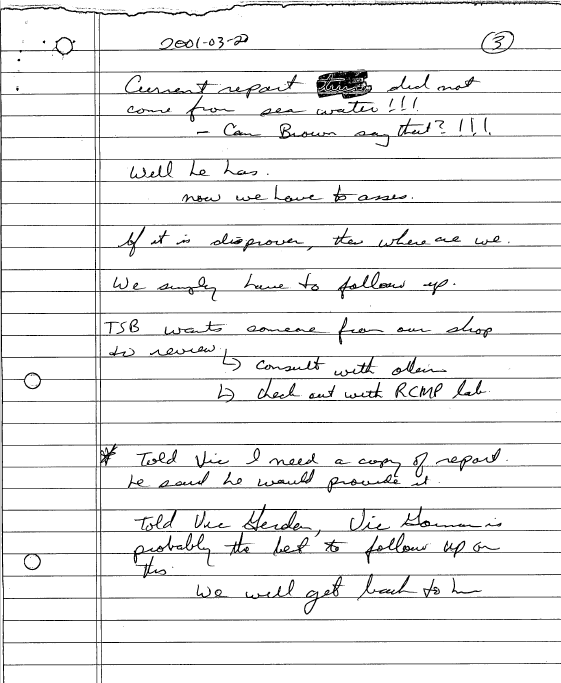 2001-03-20
3
Current report did not
come from sea water!!!
- Can Brown say that? !!!
Well he has.
now we have to asses.
If it is disproven, then where are we.
We simply have to follow up.
TSB wants someone from our shop
to review
↳ consult with others
↳ check out with RCMP lab.
* Told Vic I need a copy of report.
he said he would provide it.
Told Vic Gerden, Vic Gorman is
probably the best to follow up on
this.
We will get back to him